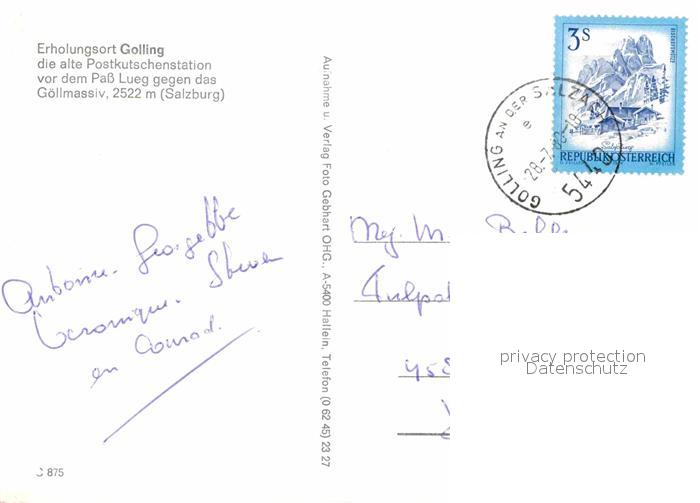 Erholungsort Golling
die alte Postkutschenstation
vor dem Paß Lueg gegen das
Göllmassiv, 2522 m (Salzburg)
Aufnahme u. Verlag Foto Gebhart OHG., A-5400 Hallein, Telefon (0 62 45) 23 27
3 S
BISCHOFSMÜTZE
Salzburg
REPUBLIK ÖSTERREICH
GOLLING AN DER SALZACH
5440
e
28.-7.
Antoine. Georgette
Veronique. Steven
en Conrad.
Mej. M.
Tulpa
458
privacy protection
Datenschutz
C 875